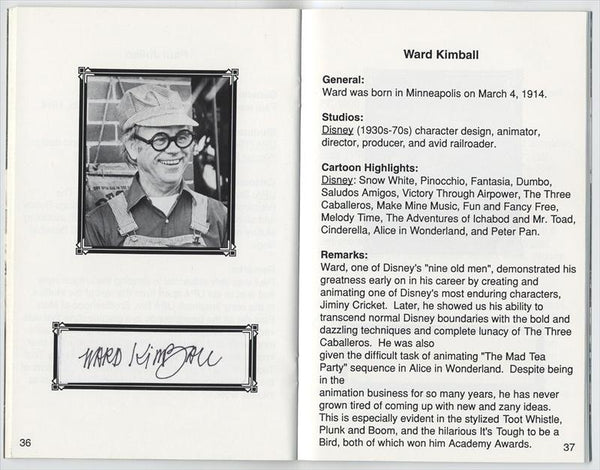 WARD KIMBALL
36
Ward Kimball
General:
Ward was born in Minneapolis on March 4, 1914.
Studios:
Disney (1930s-70s) character design, animator,
director, producer, and avid railroader.
Cartoon Highlights:
Disney: Snow White, Pinocchio, Fantasia, Dumbo,
Saludos Amigos, Victory Through Airpower, The Three
Caballeros, Make Mine Music, Fun and Fancy Free,
Melody Time, The Adventures of Ichabod and Mr. Toad,
Cinderella, Alice in Wonderland, and Peter Pan.
Remarks:
Ward, one of Disney's "nine old men", demonstrated his
greatness early on in his career by creating and
animating one of Disney's most enduring characters,
Jiminy Cricket. Later, he showed us his ability to
transcend normal Disney boundaries with the bold and
dazzling techniques and complete lunacy of The Three
Caballeros. He was also
given the difficult task of animating "The Mad Tea
Party" sequence in Alice in Wonderland. Despite being
in the
animation business for so many years, he has never
grown tired of coming up with new and zany ideas.
This is especially evident in the stylized Toot Whistle,
Plunk and Boom, and the hilarious It's Tough to be a
Bird, both of which won him Academy Awards.
37